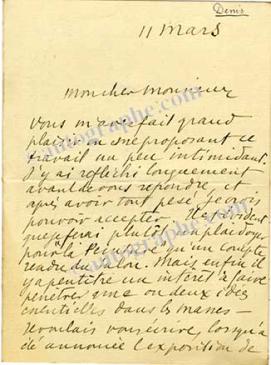 Denis
11 Mars
Mon cher Monieur
Vous m'avez fait grand
plaisir en me proposant ce
travail un peu intimidant.
J'y ai réfléchi longuement
avant de vous répondre, et
après avoir tout pesé, je crois
pouvoir accepter. Il est évident
que je ferai plutôt un plaidoyer
pour la Peinture qu'un compte
rendu du Salon. Mais enfin il
y a peut être un intérêt à faire
pénétrer une ou deux idées
essentielles dans les masses —
Je voulais vous écrire, lorsqu'a
été annoncée l'exposition de
www.autographe.com